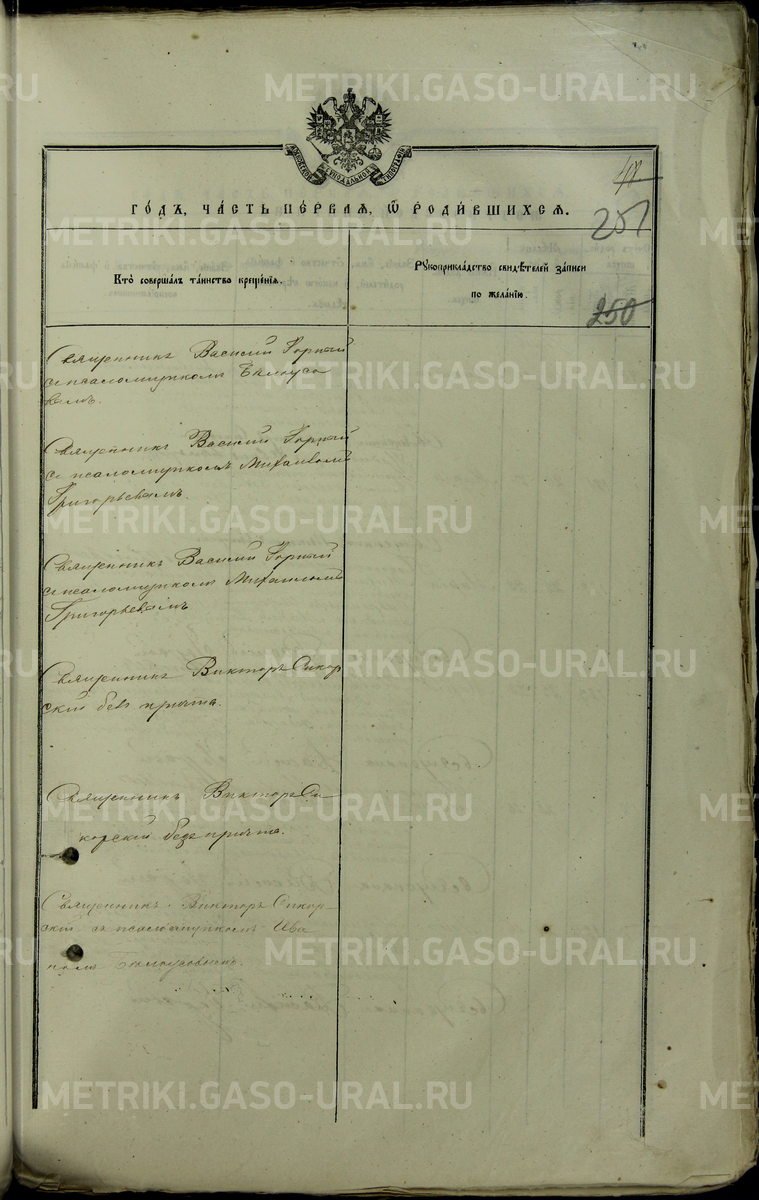 METRIKI.GASO-URAL.RU
СѴНОДАЛЬНОЙ ТИПОГРАФІИ
47
ГО́ДЪ, ЧА́СТЬ ПЕ́РВАЯ, Ѡ҆ РОДИ́ВШИХСѦ.
251
Кто̀ соверша́лъ та́инство креще́нїѧ.
Рꙋкоприкла́дство свидѣ́телей за́писи
по жела́нїю.
250
Священникъ Василій Горный
съ псаломщикомъ Бѣлоусо
вымъ.
Священникъ Василій Горный
съ псаломщикомъ Михаиломъ
Григорьевымъ.
Священникъ Василій Горный
съ псаломщикомъ Михаиломъ
Григорьевымъ
Священникъ Викторъ Сикор
скій безъ причта.
Священникъ Викторъ Си
корскій безъ причта.
Священникъ Викторъ Сикор-
скій съ псаломщикомъ Ива
номъ Бѣлоусовымъ.